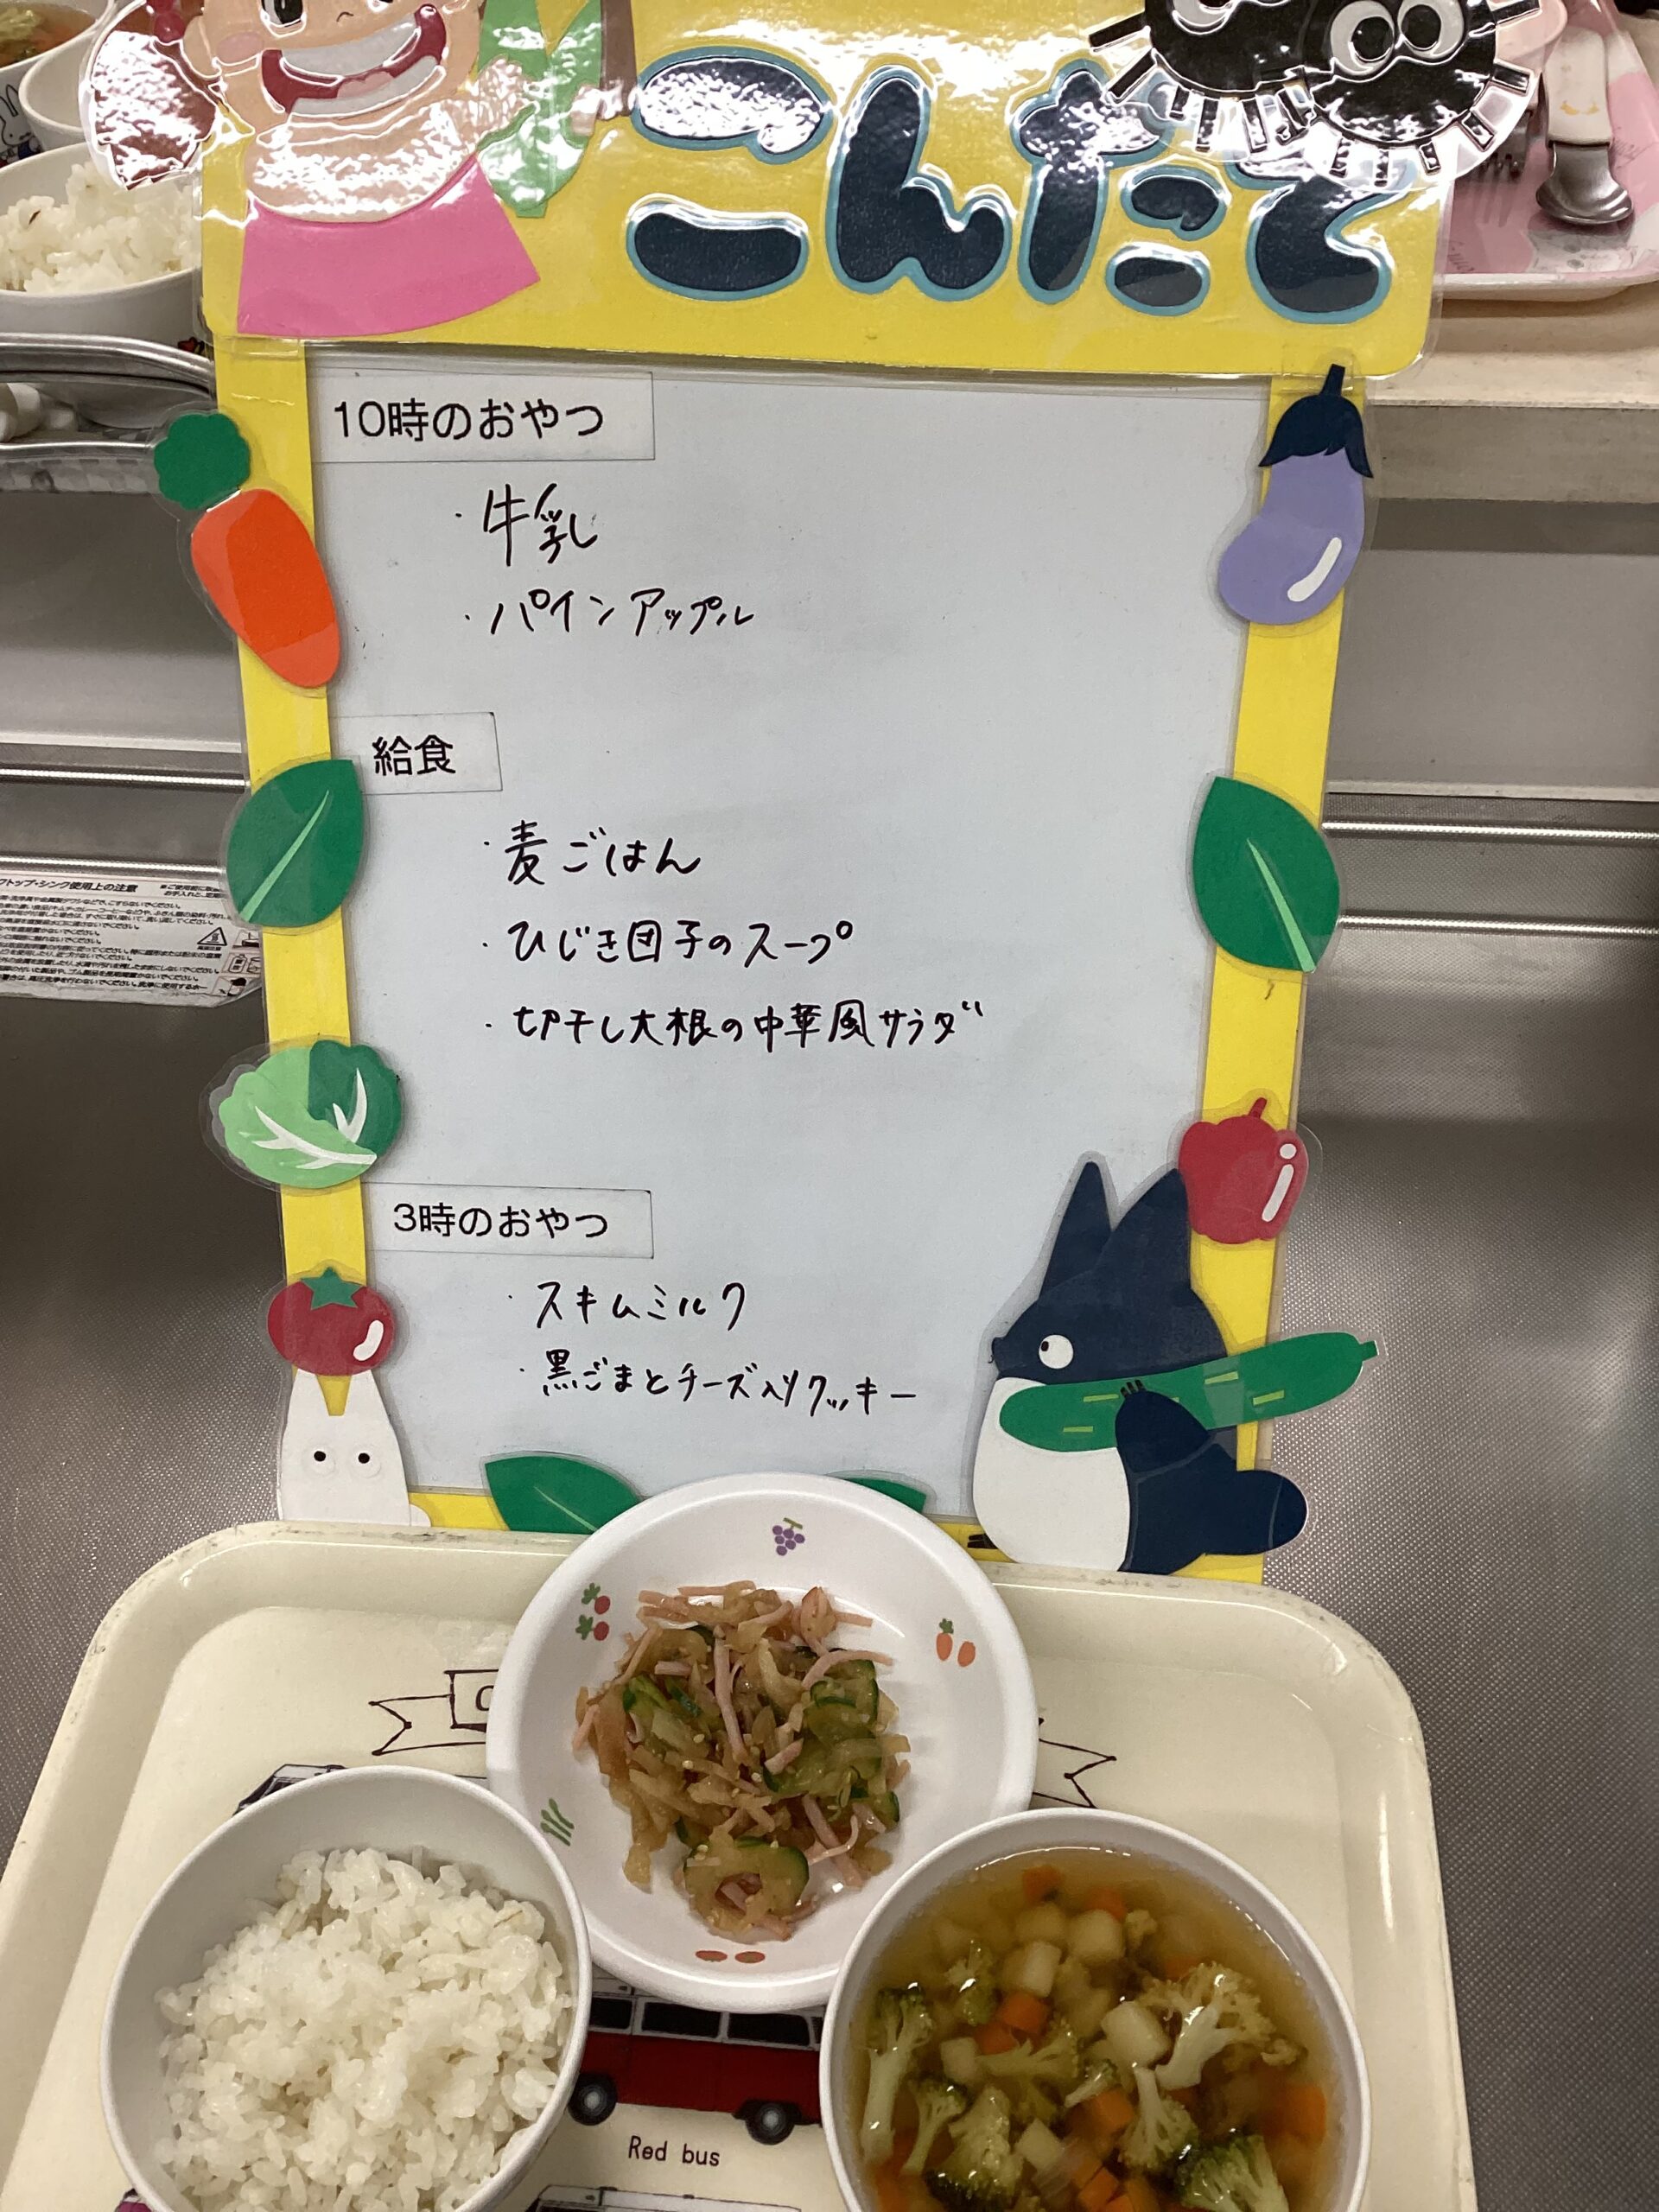 こんだて
10時のおやつ
・牛乳
・パインアップル
給食
・麦ごはん
・ひじき団子のスープ
・切干し大根の中華風サラダ
3時のおやつ
・スキムミルク
・黒ごまとチーズ入りクッキー
トップ・シンク使用上の注意
Red bus